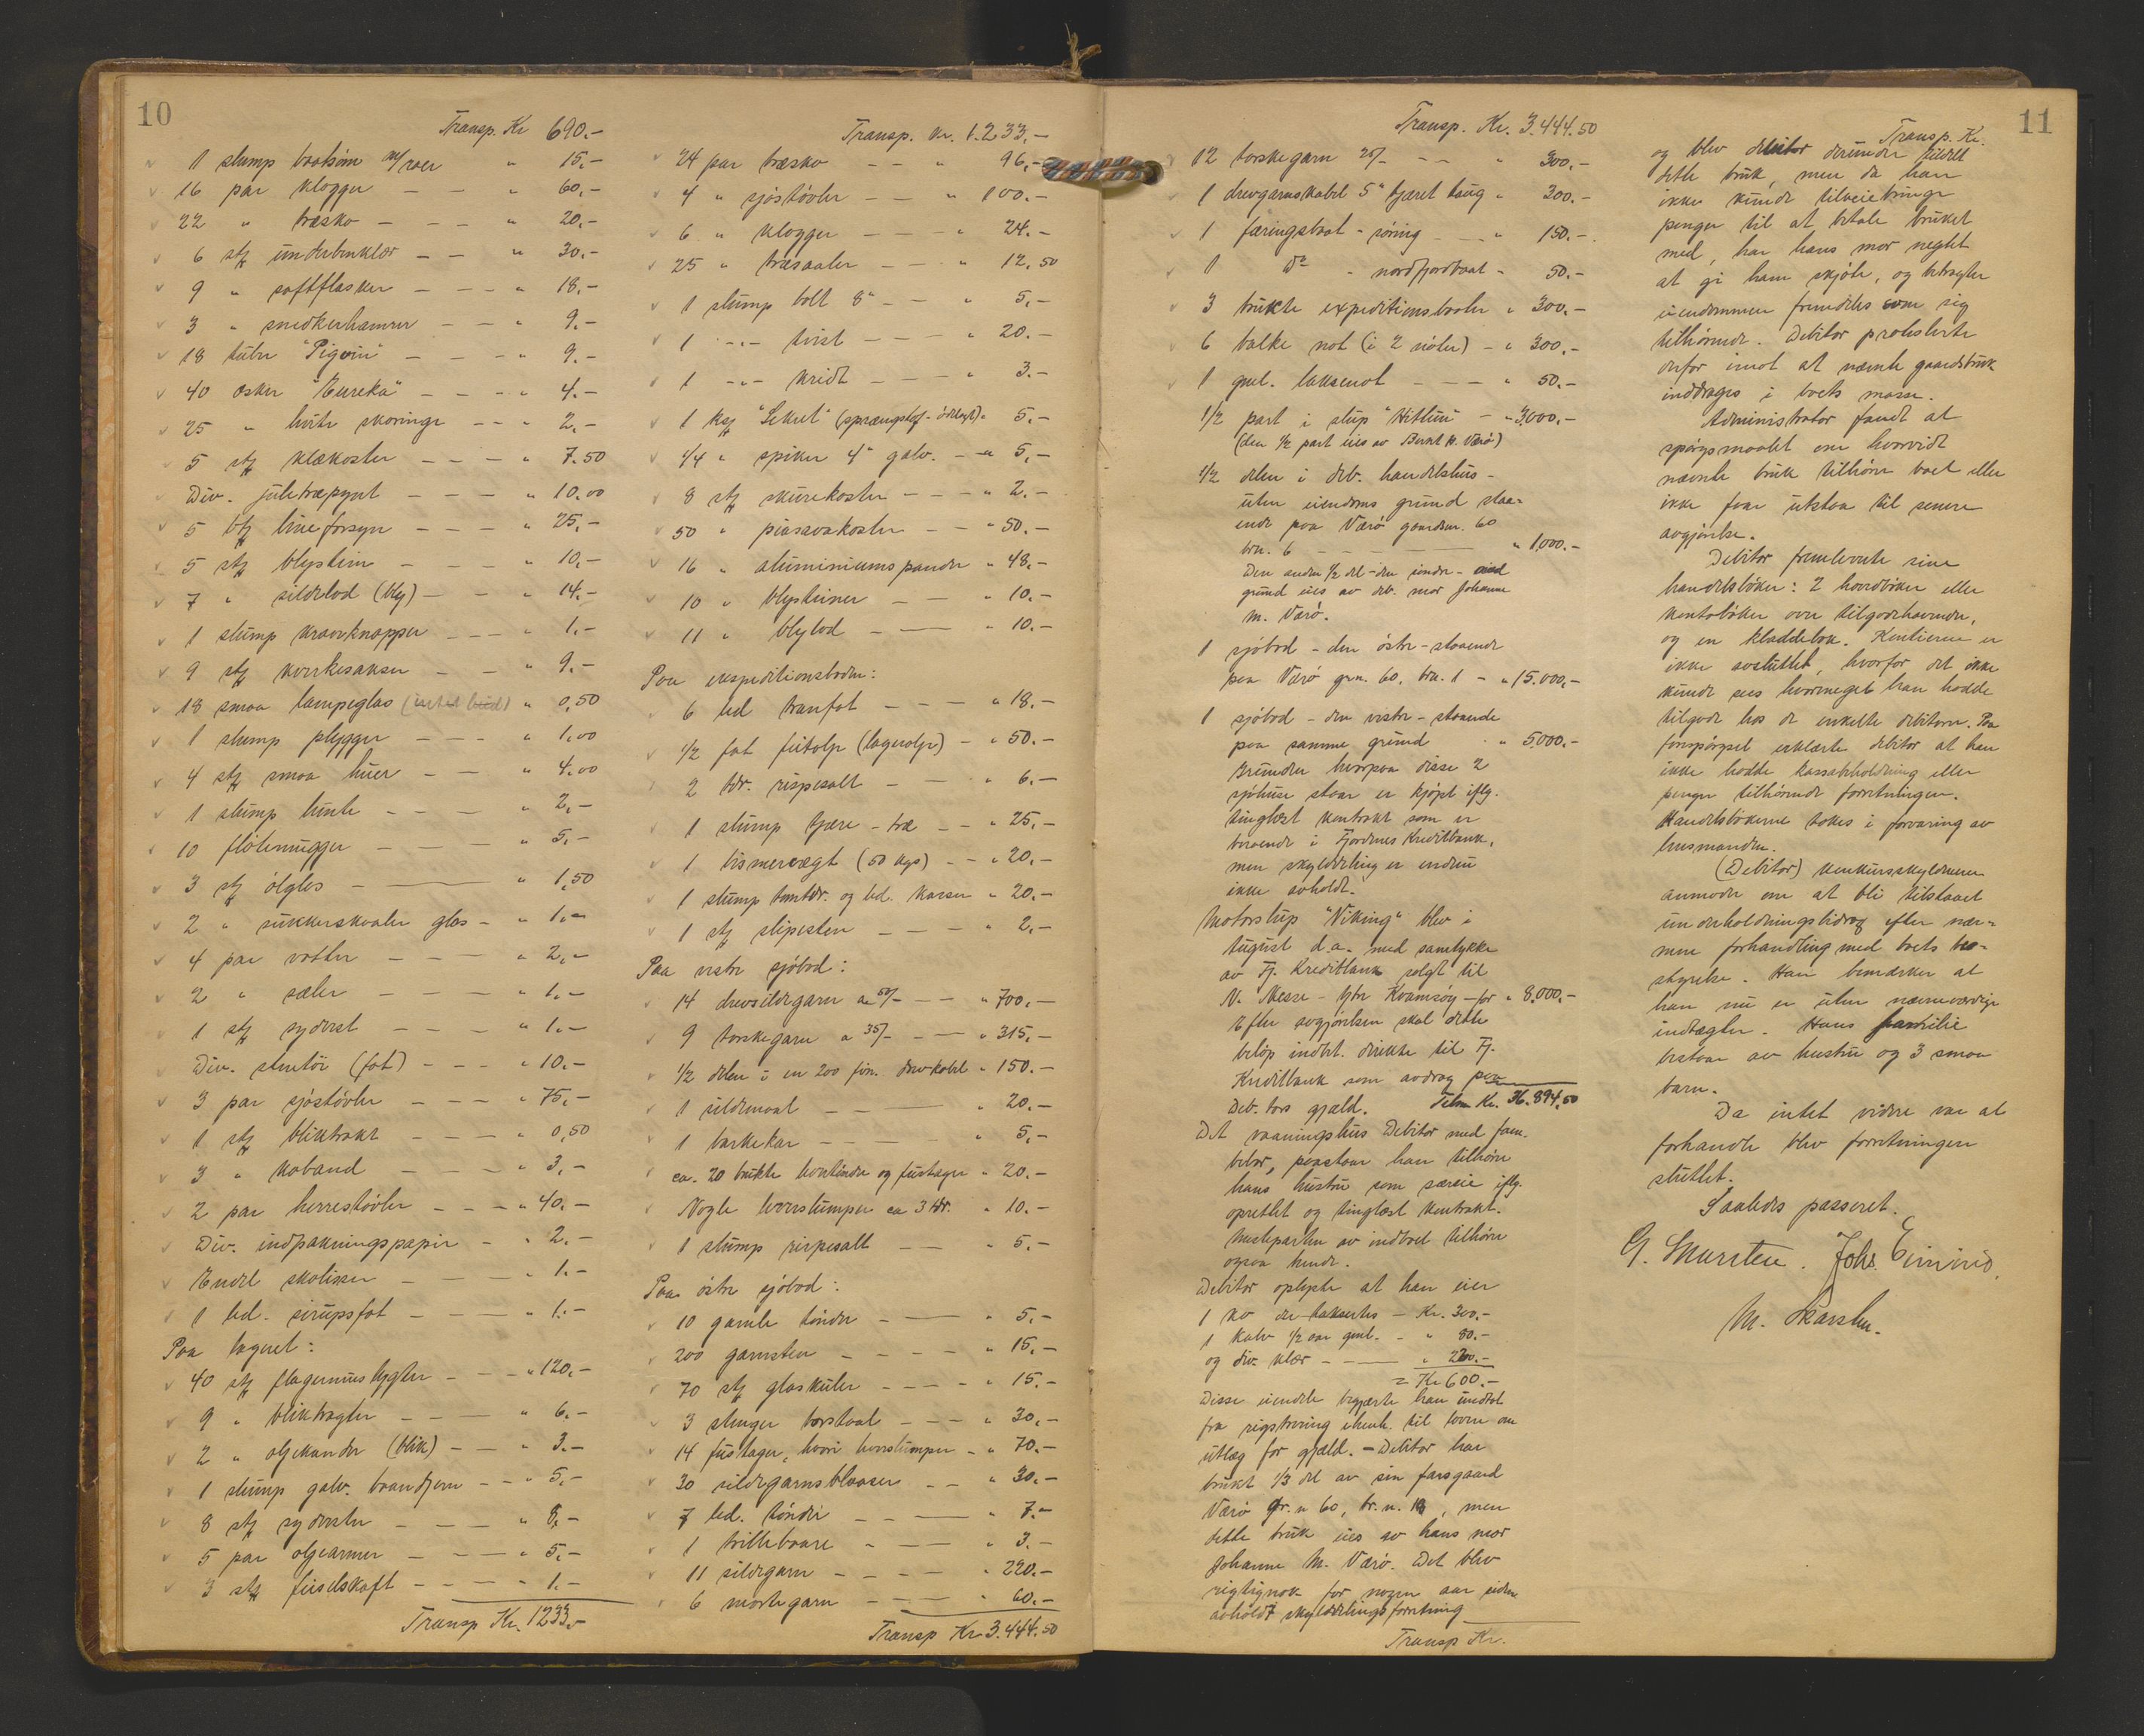 10
Transp. Kr 690.-
1 slump baatsöm m/roer " 15,-
16 par klogger - - " 60,-
22 " træsko - - - " 20,-
6 stk underbuklær - - " 30.-
9 " saftflasker - - - " 18,-
3 " snedkerhamrer - - " 9.-
18 tuber "Pigvin" - - - " 9.-
40 æsker "Eureka" - - - " 4.-
25 " hvite skoringe - - " 2,-
5 stk klækoster - - - " 7.50
Div. juletræpynt - - - " 10.00
5 bt lineforsyn - - - " 25,-
5 stk blystein - - - " 10,-
7 " sildelod (bly) - - " 14.-
1 slump kravknapper - - - " 1.-
9 stk kverkesakser - - " 9.-
18 smaa lampeglas (intet bud) " 0,50
1 slump plygger - - - " 1,00
4 stk smaa huer - - " 4.00
1 slump lunte - - - " 2,-
10 flötemugger - - - " 5,-
3 stk ölglas - - " 1,50
2 " sukkerskaaler glas - " 1.-
4 par votter - - - " 2,-
2 " sæler - - - - " 1.-
1 stk sydvest - - - " 1.-
Div. stentöi (fat) - - - " 10.-
3 par sjöstövler - - - " 75,-
1 stk bliktrakt - - - " 0,50
3 " koband - - - - " 3,-
2 par herrestövler - - - " 40,-
Div. indpakningspapir - " 2,-
Endel skolisser - - - " 1.-
1 led. sirupsfat - - - " 1.-
Paa lageret:
40 stk flagermuslygter - - - " 120,-
9 " bliktragter - - - " 6.-
2 " oljekander (blik) - - " 3.-
1 slump galv. baandjern - - " 5,-
8 stk sydvester - - - " 8,-
5 par oljearmer - - - " 5,-
3 stk feiselskaft - - - - " 1.-
Transp Kr. 1233,-
Transp. Kr. 1.233,-
24 par træsko - - " 96,-
4 " sjöstövler - - " 100.-
6 " klogger - - - " 24.-
25 " træsaaler - - - " 12,50
1 slump bolt 8" - - " 5,-
1 -"- tvist - - - " 20.-
1 -"- kridt - - - " 3.-
1 ks "Lekut" (sprængstof - ödelagt) " 5.-
1/4 " spiker 4" galv. - " 5,-
8 stk skurekoster - - - " 2.-
50 " piasavakoster - - " 50.-
16 " aluminiumspander " 48.-
10 " blysteiner - - " 10.-
11 " blylod - - " 10.-
Paa expeditionsboden:
6 led tranfat - - - " 18.-
1/2 fat feitolje (lagerolje) - " 50.-
2 tdr. rispesalt - - " 6.-
1 slump tjære - træ - - " 25,-
1 bismervægt (50 kgs) - - " 20.-
1 slump tomtdr. og led. kasser " 20.-
1 stk slipesten - - - " 2,-
Paa vestre sjöbod:
14 drivsildgarn a 50/- - - " 700,-
9 torskegarn a 35/- - - " 315,-
1/2 delen i en 200 fvn. drivkabel " 150.-
1 sildemaal - - " 20.-
1 barkekar - - - " 5,-
ca. 20 brukte levertönder og fustager " 20.-
Nogle leverslumper ca 3 tdr. " 10.-
1 slump rispesalt - - " 5,-
Paa östre sjöbod:
10 gamle tönder - - " 5.-
200 garnsten - - - - " 15,-
70 stk glaskuler - - - " 15.-
3 stenger borstaal - - - " 30,-
14 fustager, hvori leverslumper - " 70.-
30 sildegarnsblaaser - - " 30.-
7 led. tönder - - " 7.-
1 trillebaare - - - " 3.-
11 sildegarn - - - - " 220.-
6 mortegarn - - - " 60.-
Transp Kr 3.444.50
Transp. Kr. 3.444.50
12 torskegarn 25/- - - " 300,-
1 drivgarnskabel 5" tjæret taug " 300.-
1 færingsbaat - röring - - " 150.-
1 do - nordfjordbaat - 50.-
3 brukte expeditionsbaater " 300.-
6 balke not (i 2 nöter) - " 300,-
1 gml. laksenot - - - " 50.-
1/2 part i slup "Hitlun" - " 3,000,-
(den 1/2 part eies av Bernt K. Værö)
1/2 delen i deb. handelshus -
uten eiendoms grund staa-
ende paa Værö gaardsnr. 60
brn. 6 - - - " 1,000.-
Den anden 1/2 del - den indre - med
grund eies av deb. mor Johanne
M. Værö.
1 sjöbod - den östre - staaende
paa Værö grn. 60, brn. 1 - " 15.000,-
1 sjöbod - den vestre - staaende
paa samme grund " 5,000.-
Grunden hvorpaa disse 2
sjöhuse staar er kjöpt iflg.
tinglæst kontrakt som er
beroende i Fjordenes Kreditbank,
men skylddeling er endnu
ikke avholdt.
Motorslup "Viking" blev i
August d.a. med samtykke
av Fj. Kreditbank solgt til
N. Messe - Ytre Kvamsöy - for " 8,000,-
Efter avgjörelsen skal dette
belöp indbet. direkte til Fj.
Kreditbank som avdrag paa
Deb.tors gjæld. Tils. Kr. 36.894,50
Det vaaningshus Debitor med fam.
bebor, paastaar han tilhöre
hans hustru som særeie iflg.
oprettet og tinglæst kontrakt.
Mesteparten av indboet tilhöre
ogsaa hende.
Debitor oplyste at han eier
1 ko der taksertes - Kr. 300.-
1 kalv 1/2 aar gml. - " 80.-
og div. klær - - " 220.-
= Kr 600.-
Disse eiendele begjærte han undtat
fra registrering i henh. til loven om
utlæg for gjæld. - Debitor har
brukt 1/3 del av sin farsgaard
Værö gr.n 60, br.n. 18, men
dette bruk eies av hans mor
Johanne M. Værö. Det blev
rigtignok for nogen aar siden
avholdt skylddelingsforretning
Transp Kr.
11
Transp. Kr.
og blev debitor derunder tildelt
dette bruk, men da han
ikke kunde tilveiebringe
penger til at betale bruket
med, har hans mor negtet
at gi ham skjöte, og betragter
eiendommen fremdeles som sig
tilhörende. Debitor protesterte
derfor imot at nævnte gaardsbruk
inddrages i boets masse.
Administrator fandt at
spörgsmaalet om hvorvidt
nævnte bruk tilhöre boet eller
ikke faar utstaa til senere
avgjörelse.
Debitor fremleverte sine
handelsböker: 2 hovedböker eller
kontoböker over tilgodehavender,
og en kladdebok. Kontiene er
ikke avsluttet, hvorfor det ikke
kunde sees hvormeget han hadde
tilgode hos de enkelte debitorer. Paa
forespörgsel erklærte debitor at han
ikke hadde kassabeholdning eller
penger tilhörende forretningen.
Handelsbökerne tokes i forvaring av
lensmanden.
(Debitor) Konkursskyldneren
anmoder om at bli tilstaaet
underholdningsbidrag efter nær-
mere forhandling med boets be-
styrelse. Han bemærker at
han nu er uten nævneværdige
indtægter. Hans familie
bestaar av hustru og 3 smaa
barn.
Da intet videre var at
forhandle blev forretningen
sluttet.
Saaledes passeret.